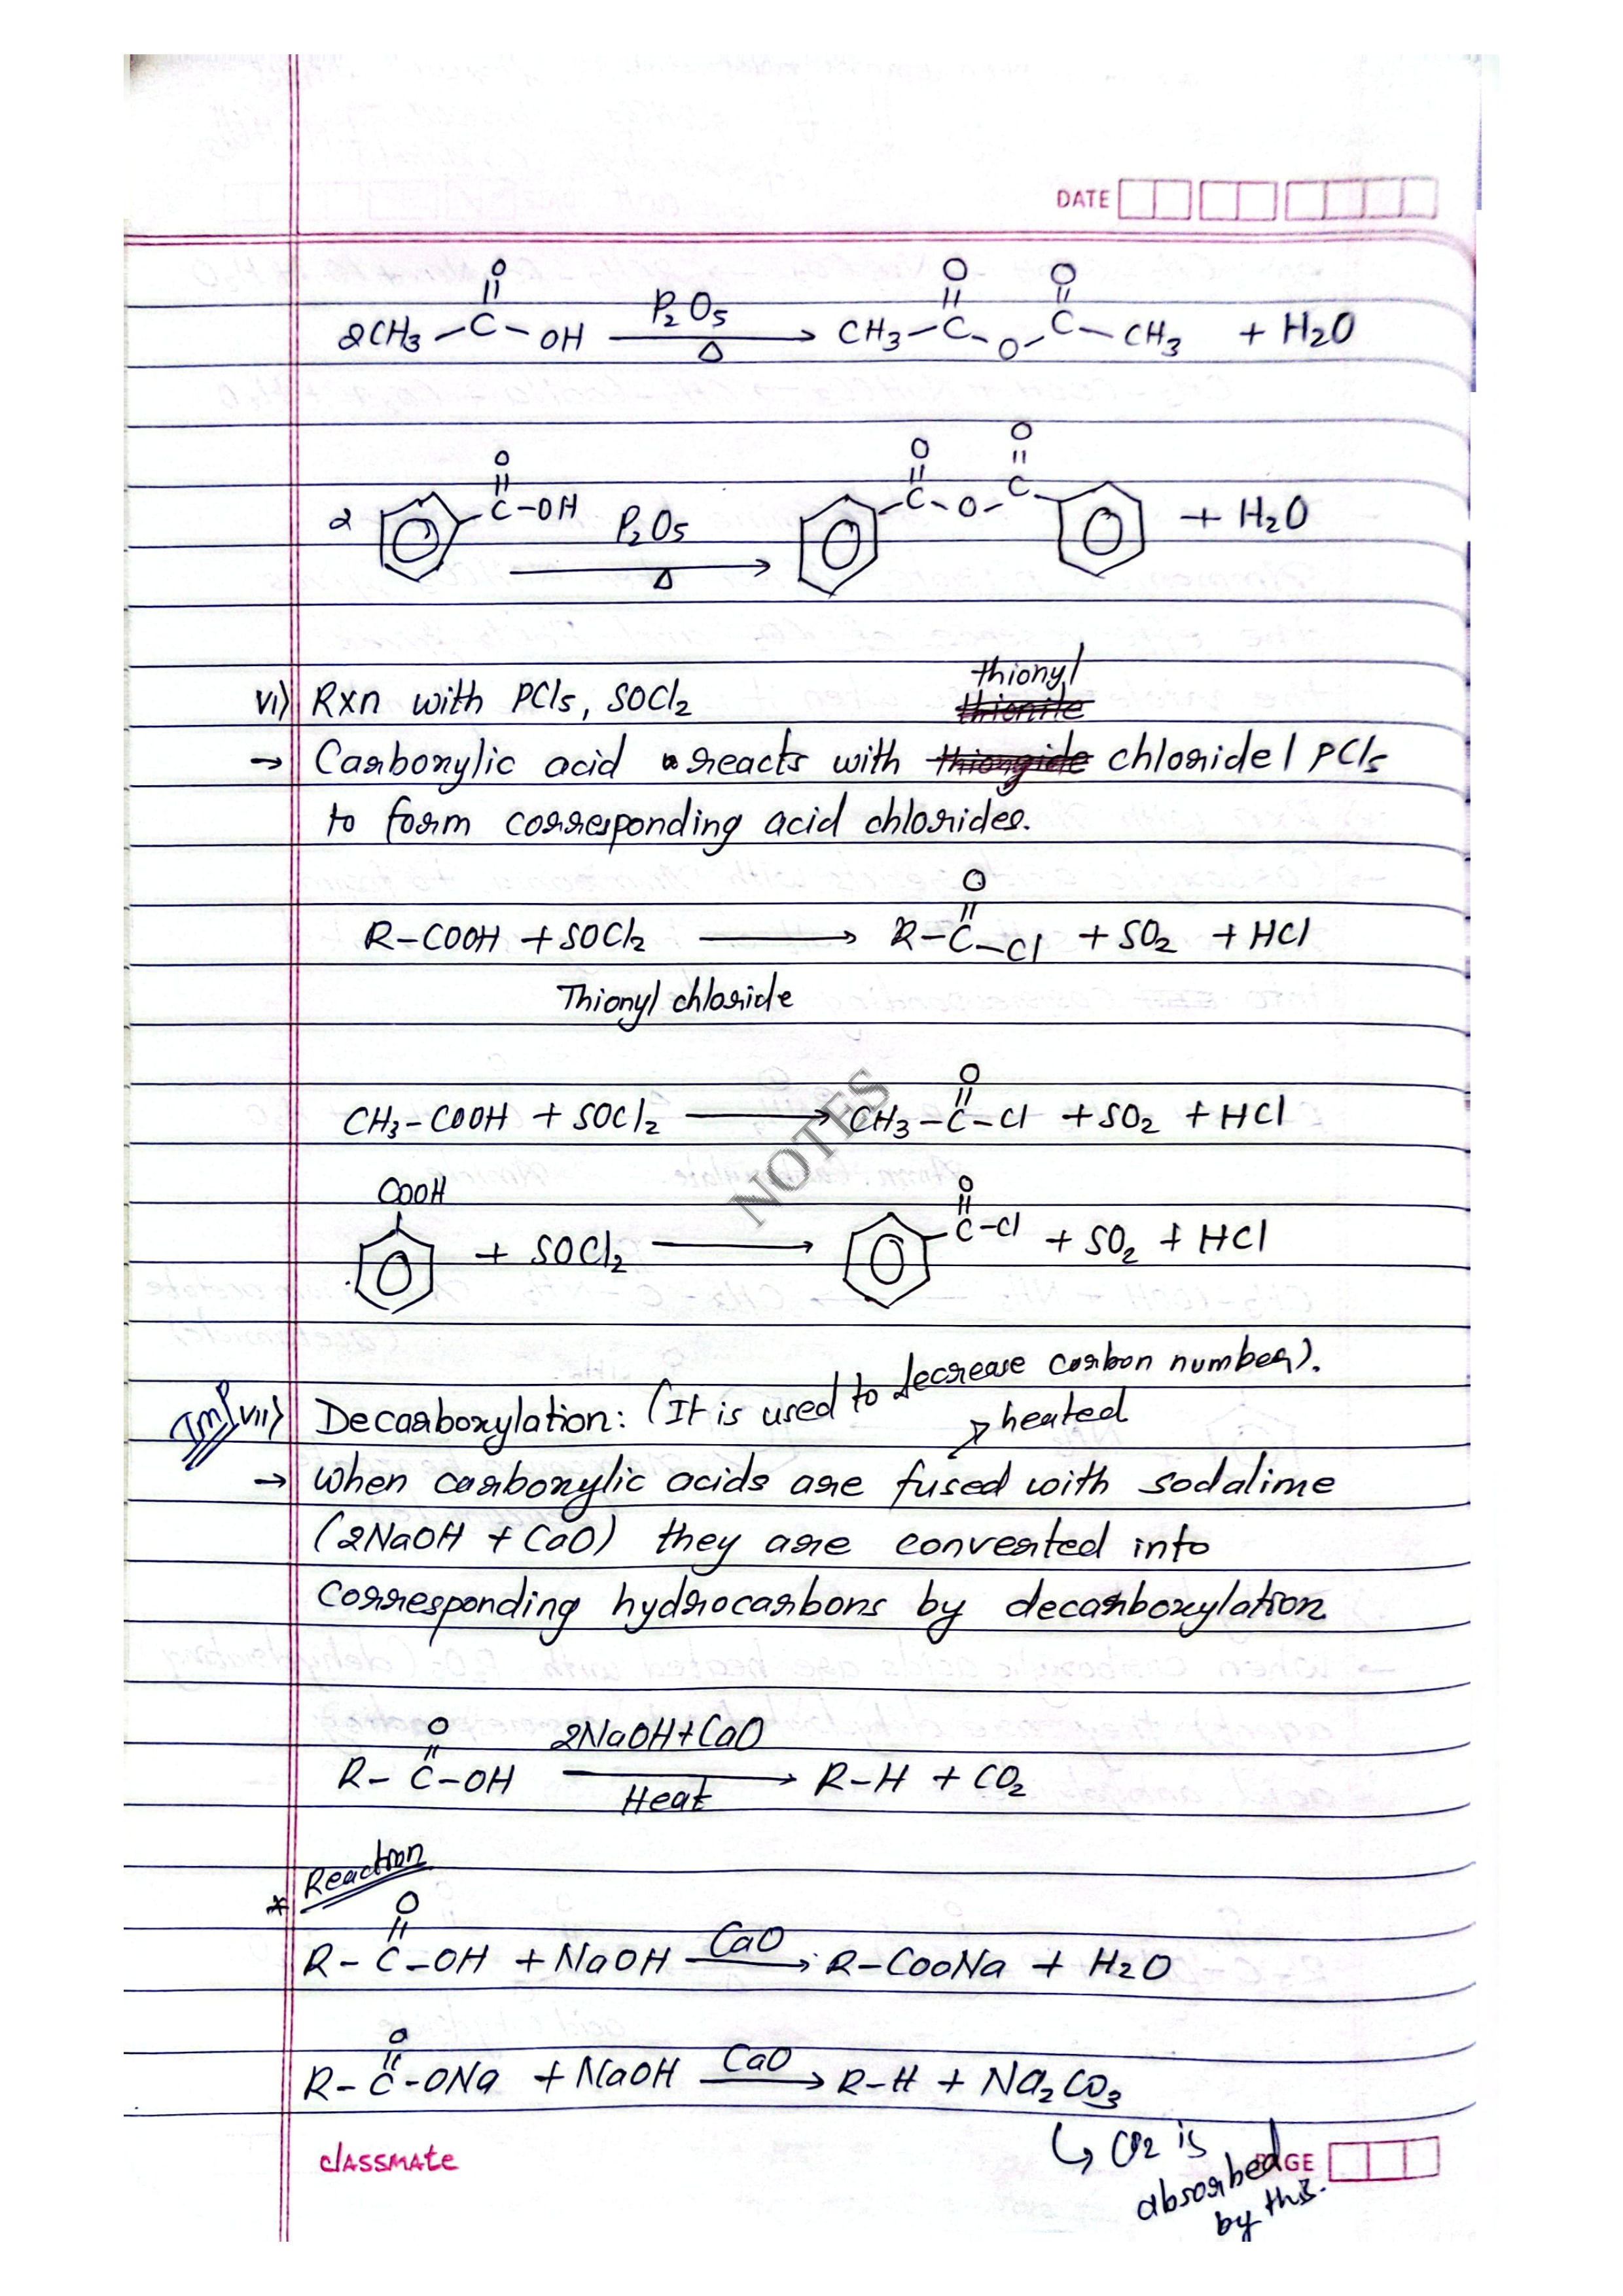 DATE
2CH3-C(=O)-OH P2O5 / Δ → CH3-C(=O)-O-C(=O)-CH3 + H2O
2 C(=O)-OH P2O5 / Δ → C(=O)-O-C(=O) + H2O
vi) Rxn with PCl5, SOCl2
→ Carboxylic acid reacts with thionyl chloride / PCl5
to form corresponding acid chlorides.
R-COOH + SOCl2 → R-C(=O)-Cl + SO2 + HCl
Thionyl chloride
CH3-COOH + SOCl2 → CH3-C(=O)-Cl + SO2 + HCl
NOTES
COOH + SOCl2 → C(=O)-Cl + SO2 + HCl
Imp vii) Decarboxylation: (It is used to decrease carbon number).
→ heated
→ When carboxylic acids are fused with sodalime
(2NaOH + CaO) they are converted into
corresponding hydrocarbons by decarboxylation
R-C(=O)-OH 2NaOH+CaO / Heat → R-H + CO2
* Reaction
R-C(=O)-OH + NaOH CaO → R-COONa + H2O
R-C(=O)-ONa + NaOH CaO → R-H + Na2CO3
↳ CO2 is
absorbed
by this.
classmate
PAGE